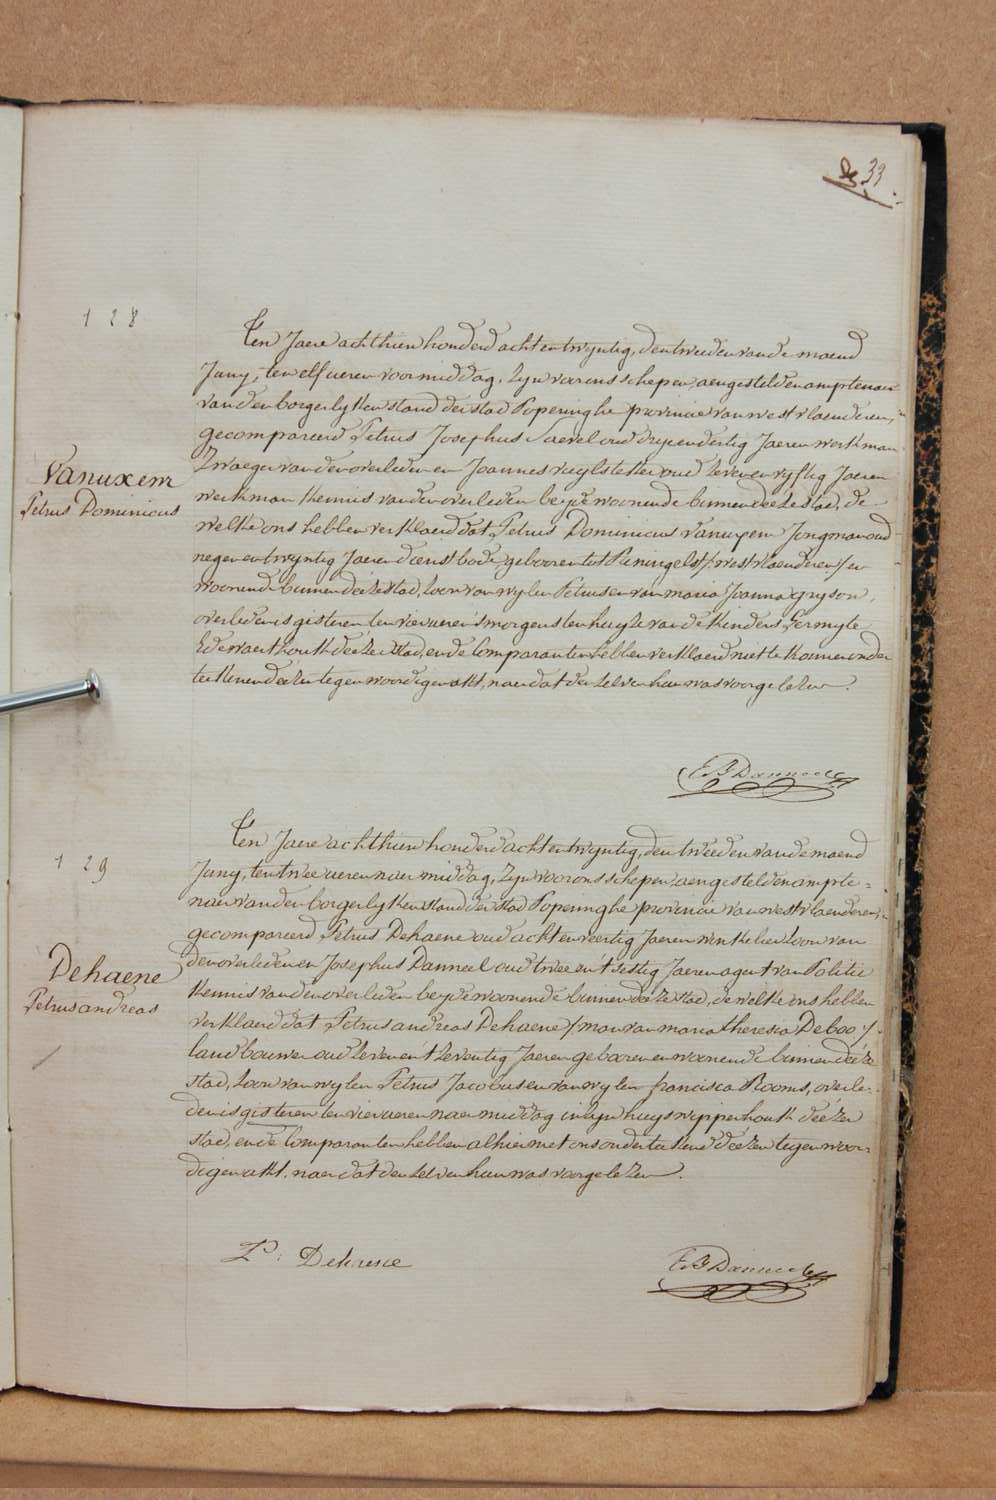 33
128
Vanuxem
Petrus Dominicus
Ten Jaere achthien honderd achtentwyntig, den tweeden van de maend
Juny, ten elf ueren voormiddag, zyn voor ons schepen aengestelden amptenaer
van den borgerlyken stand der stad Poperinghe provincie van westvlaenderen,
gecompareerd Petrus Josephus oud dryendertig Jaeren werkman
Zwaeger van den overleden en Joannes oud zevenenvyftig Jaeren
werkman Kennis van den overleden beyde woonende binnen deeze stad, de
welke ons hebben verklaerd dat Petrus Dominicus Vanuxem Jongman oud
negenentwyntig Jaeren dienstbode, geboren tot Reningelst /westvlaenderen/ en
woonende binnen deeze stad, zoon van wylen Petrus en van maria Joanna gryson,
overleden is gisteren ten vier ueren 's morgens ten huyze van de Kinders Fermyte
Edewaerthouk deezer stad, en de Comparanten hebben verklaerd niet te Konnen onder
teekenen deezen tegenwoordigen akt, naer dat den zelven hun was voorgelezen.
E B Danneel
129
Dehaene
Petrus andreas
Ten Jaere achthien honderd achtentwyntig, den tweeden van de maend
Juny, ten twee ueren naermiddag, zyn voor ons schepen aengestelden ampte=
naer van den borgerlyken stand der stad Poperinghe provincie van westvlaenderen,
gecompareerd Petrus Dehaene oud achtenveertig Jaeren winkelier zoon van
den overleden en Josephus Danneel oud twee en 't sestig Jaeren agent van Politie
Kennis van den overleden beyde woonende binnen deeze stad, de welke ons hebben
verklaerd dat Petrus andreas Dehaene /man van maria theresia Deboo/
landbouwer oud zeven en 't zeventig Jaeren geboren en woonende binnen deeze
stad, zoon van wylen Petrus Jacobus en van wylen francisca Rooms, overle-
den is gisteren ten vier ueren naermiddag in zyn huys wipperhouk deezer
stad, en de Comparanten hebben alhier met ons onderteekend deezen tegenwoor-
digen akt, naer dat den zelven hun was voorgelezen.
P: Dehaene
E B Danneel